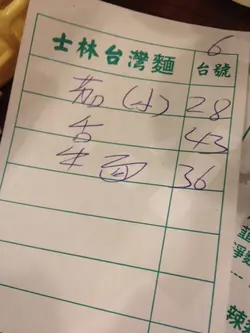 6
士林台灣麵 台號
茄(小) 28
43
牛面 36
淨麵
辣